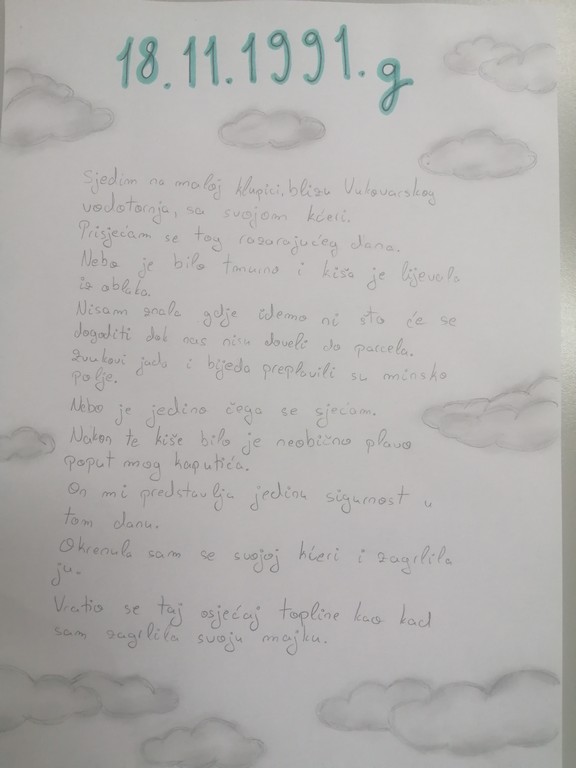 18.11.1991.g
Sjedim na maloj klupici, blizu Vukovarskog
vodotornja, sa svojom kćeri.
Prisjećam se tog razarajućeg dana.
Nebo je bilo tmurno i kiša je lijevala
iz oblaka.
Nisam znala gdje idemo ni što će se
dogoditi dok nas nisu doveli do parcela.
Zvukovi jada i bijeda preplavili su minsko
polje.
Nebo je jedino čega se sjećam.
Nakon te kiše bilo je neobično plavo
poput mog kaputića.
On mi predstavlja jedinu sigurnost u
tom danu.
Okrenula sam se svojoj kćeri i zagrlila
ju.
Vratio se taj osjećaj topline kao kad
sam zagrlila svoju majku.